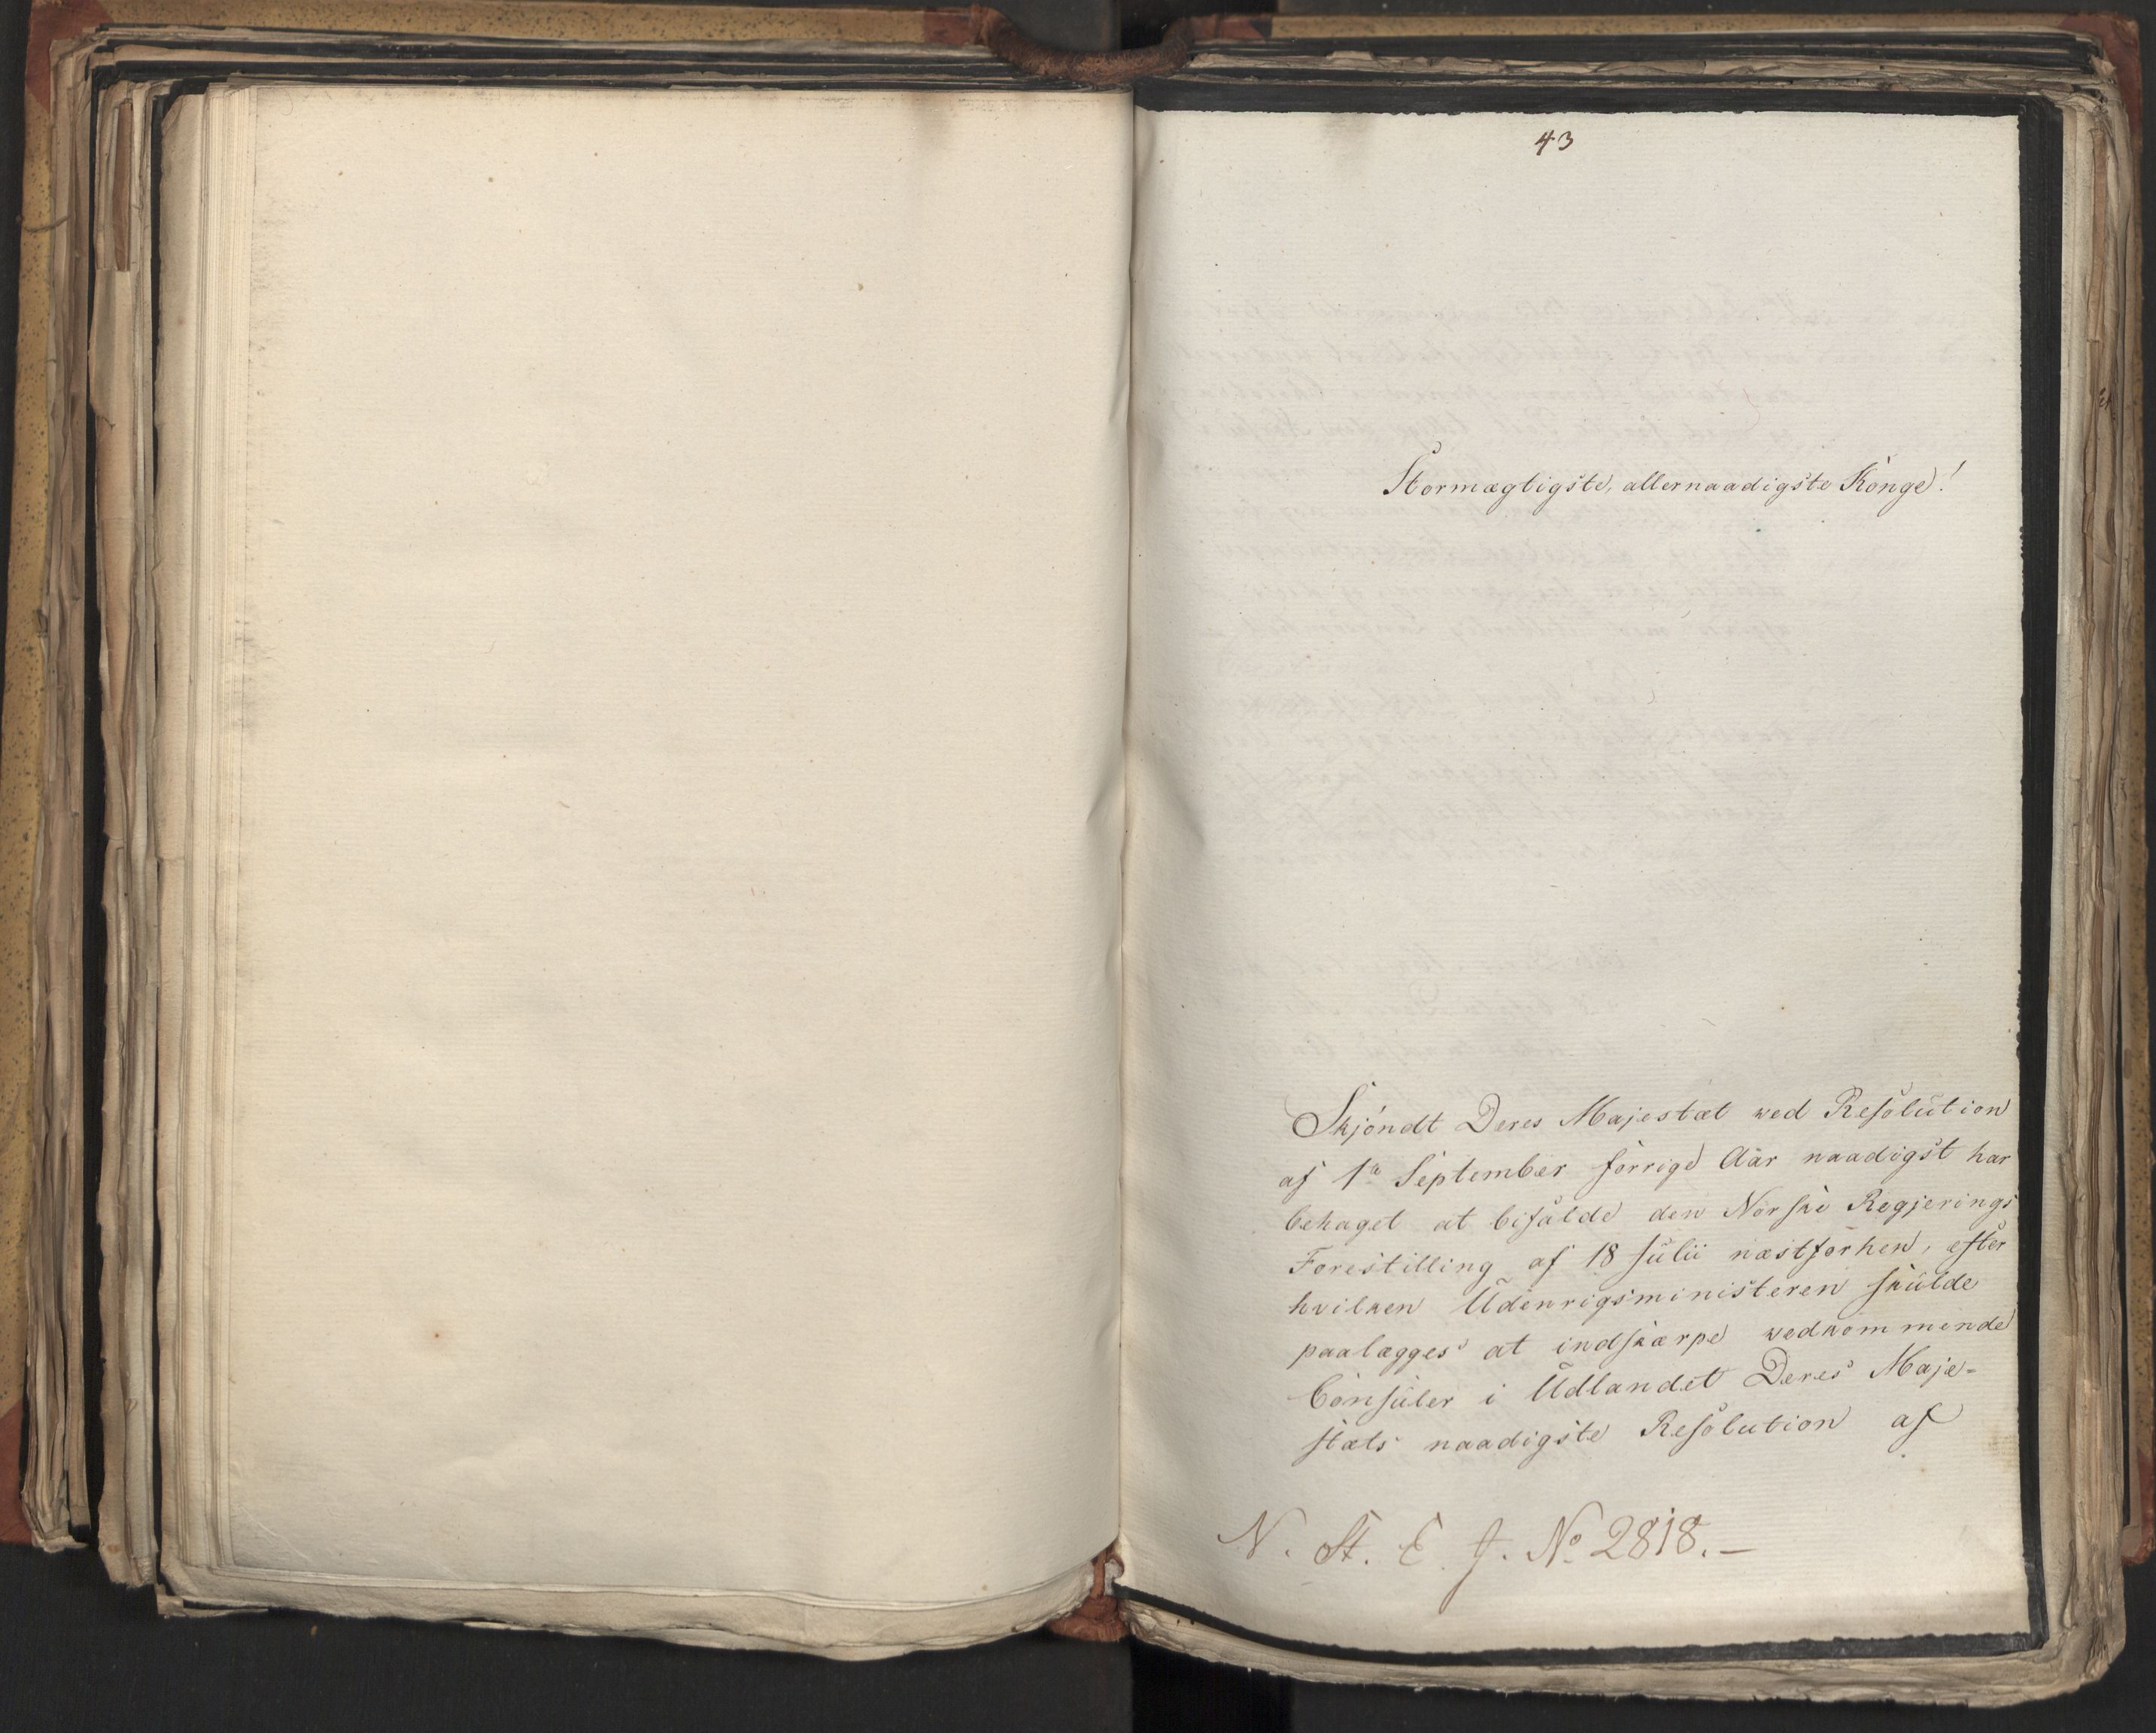 43
Stormægtigste, allernaadigste Konge!
Skjöndt Deres Majestæt ved Resolution
af 1te September forrige Aar naadigst har
behaget at bifalde den Norske Regjerings
Forestilling af 18 Julii næstforhen, efter
hvilken Udenrigsministeren skulde
paalægges at indskærpe vedkommende
Consuler i Udlandet Deres Maje-
stæts naadigste Resolution af
N. St. E. J. No 2818.—